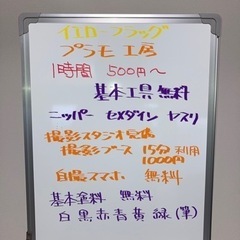 イエローフラッグ
プラモ工房
1時間 500円〜
基本工具無料
ニッパー セメダイン ヤスリ
撮影スタジオ完備
撮影ブース 15分利用
1000円
自撮スマホ 無料
基本塗料 無料
白黒赤青黄緑(筆)